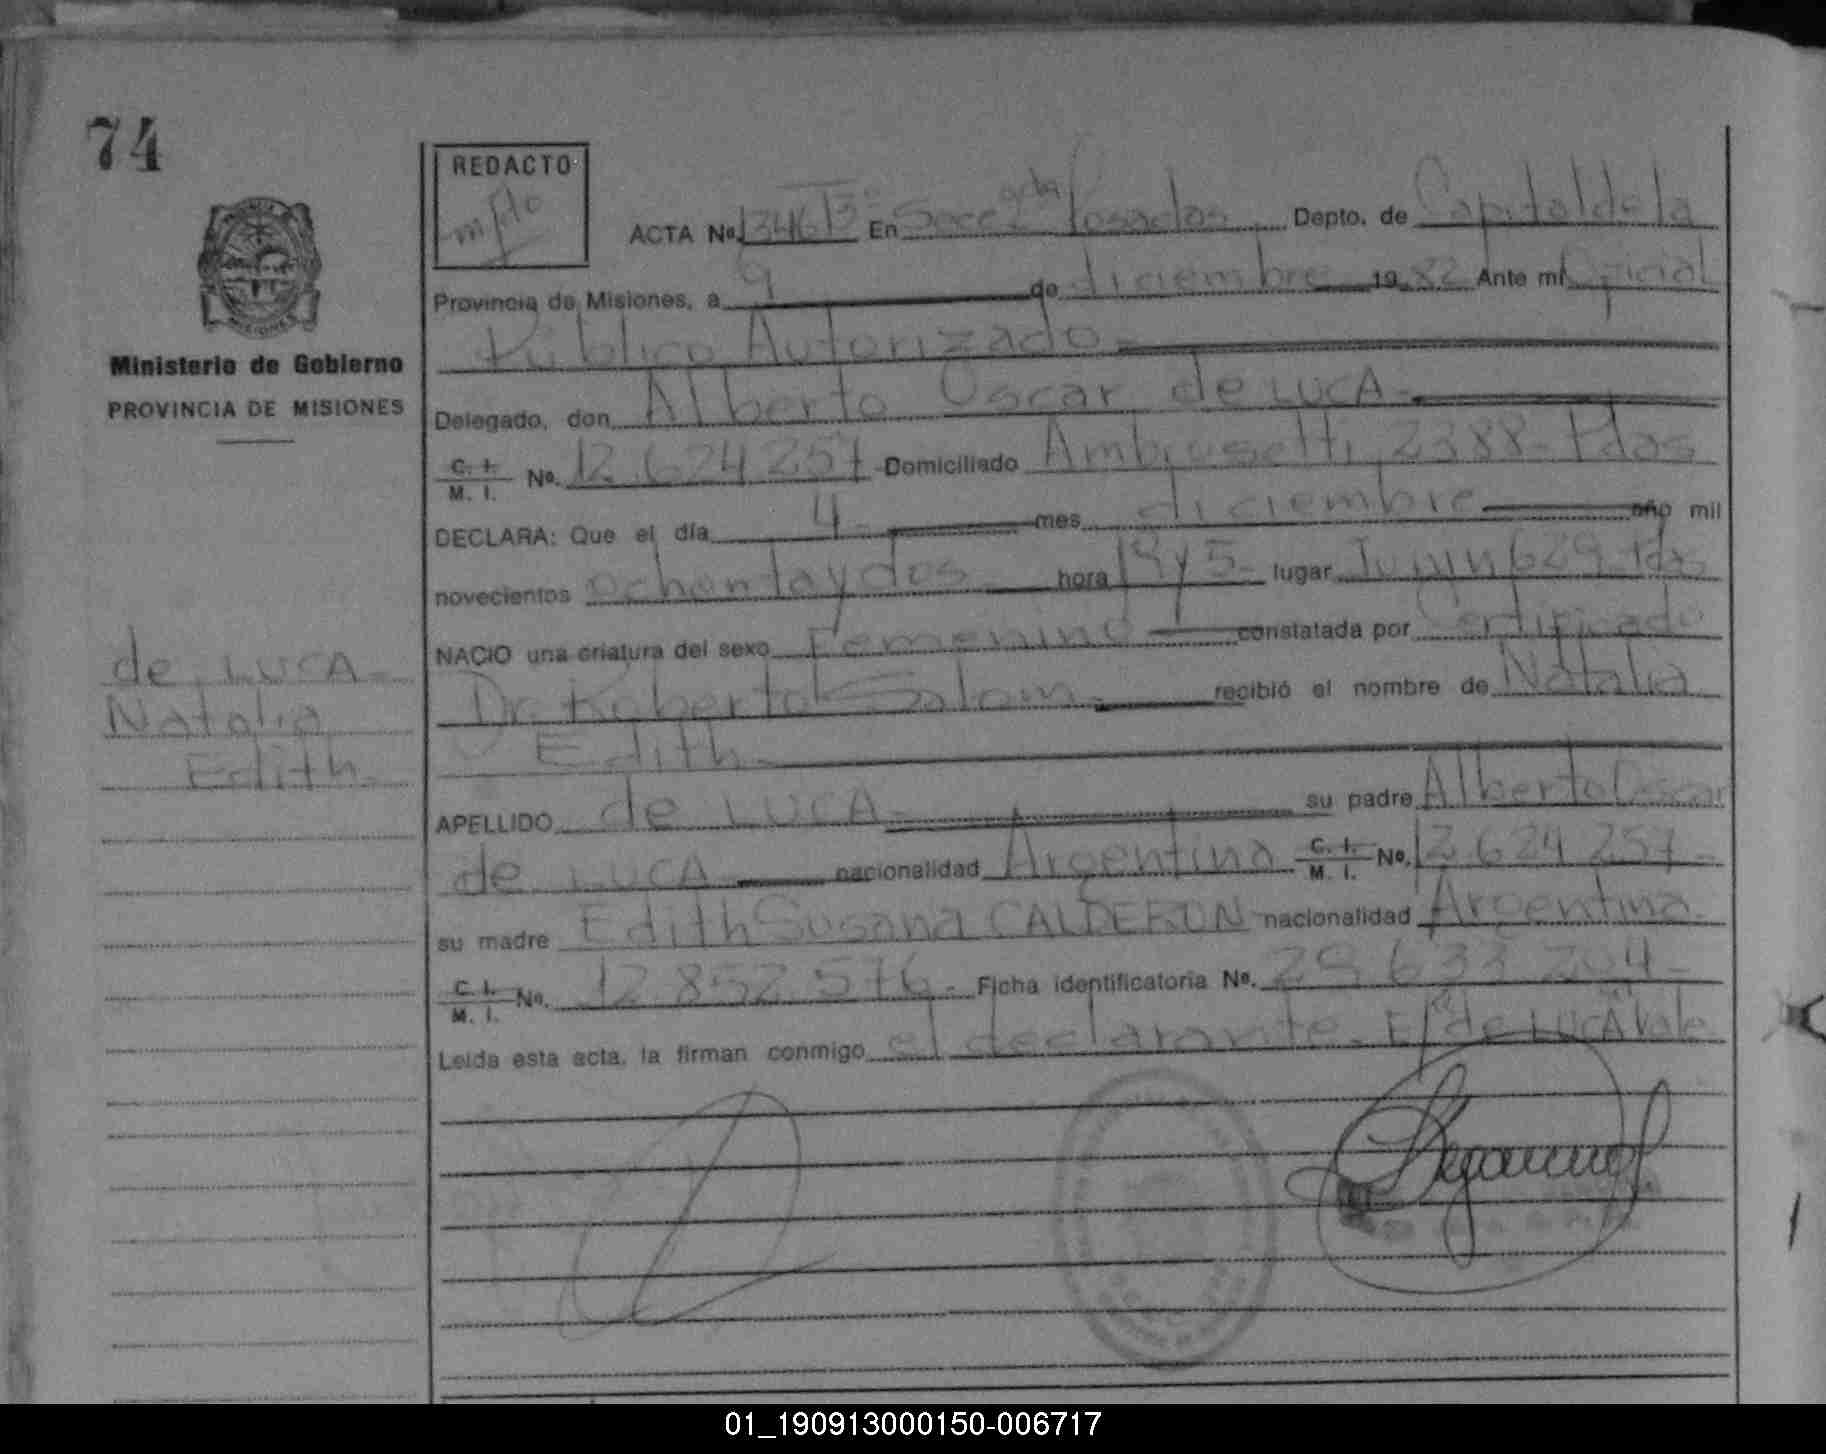 74
REDACTO
ACTA Nº 1346 T3º En Secc 2 gda Posadas Depto. de Capital de la
Provincia de Misiones, a 9 de diciembre 1982 Ante mí Oficial
Público Autorizado
Ministerio de Gobierno
PROVINCIA DE MISIONES
Delegado, don Alberto Oscar de LUCA
C. I. M. I. Nº. 12.624.257 Domiciliado Ambrosetti 2388 - Pdas
DECLARA: Que el día 4 mes diciembre año mil
novecientos ochenta y dos hora 19 y 5 lugar Junin 629 - Pdas
NACIO una criatura del sexo Femenino constatada por Certificado
Dr. Roberto Salom recibió el nombre de Natalia
Edith
de LUCA
Natalia
Edith
APELLIDO de LUCA su padre Alberto Oscar
de LUCA nacionalidad Argentina C. I. M. I. Nº. 12.624.257
su madre Edith Susana CALDERON nacionalidad Argentina
C. I. M. I. Nº. 12.852.576 Ficha identificatoria Nº. 29.633.204
Leída esta acta, la firman conmigo el declarante. de LUCA Vale
01_190913000150-006717